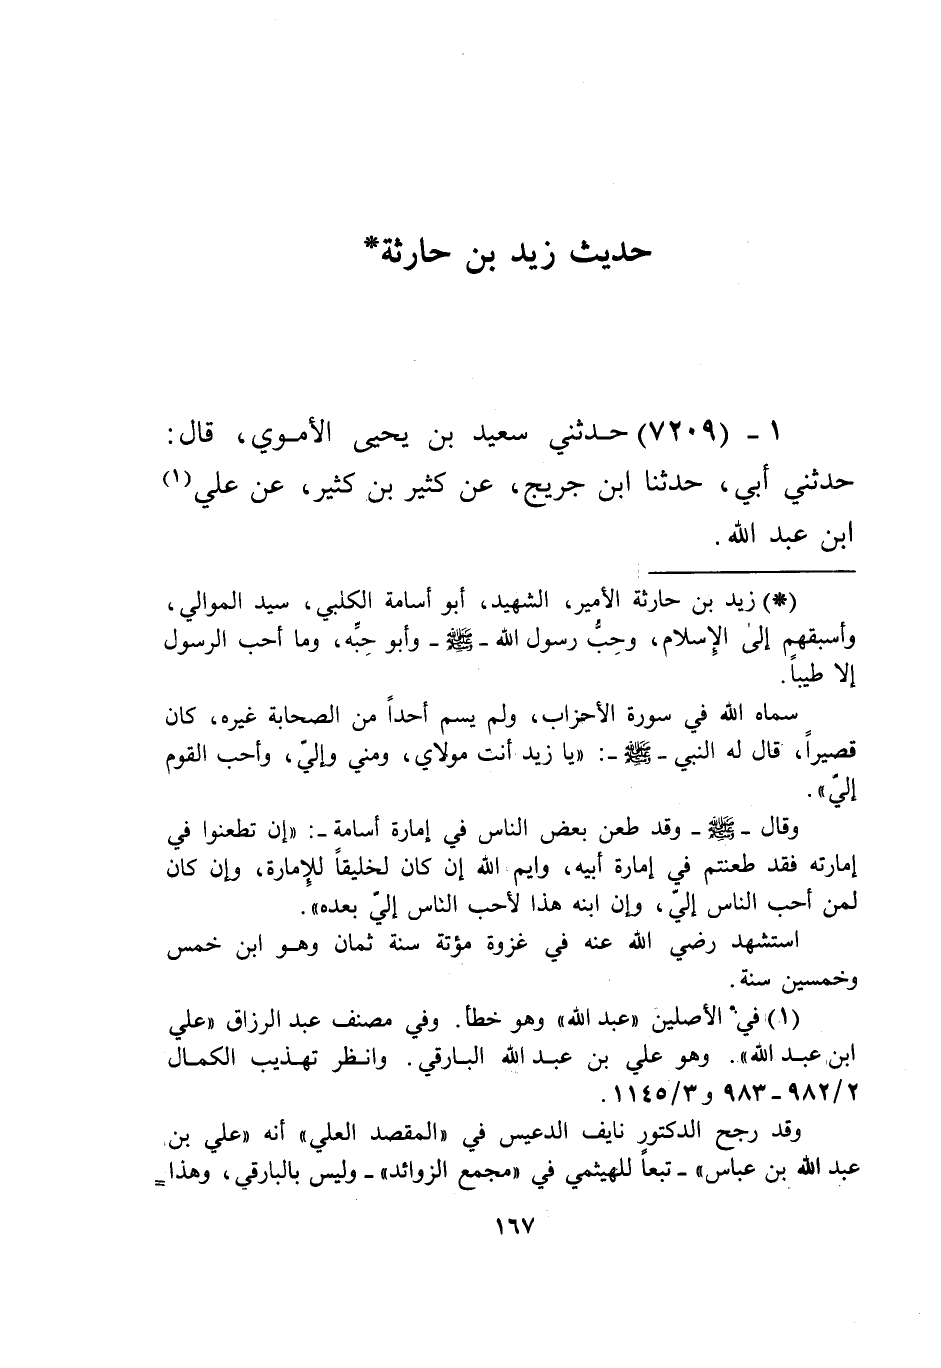 حديث زيد بن حارثة*
١ - (٧٢٠٩) حدثني سعيد بن يحيى الأموي، قال:
حدثني أبي، حدثنا ابن جريج، عن كثير بن كثير، عن علي(١)
ابن عبد الله.
(*) زيد بن حارثة الأمير، الشهيد، أبو أسامة الكلبي، سيد الموالي،
وأسبقهم إلى الإسلام، وحِبُّ رسول الله - ﷺ - وأبو حِبِّه، وما أحب الرسول
إلا طيباً.
سماه الله في سورة الأحزاب، ولم يسم أحداً من الصحابة غيره، كان
قصيراً، قال له النبي - ﷺ -: «يا زيد أنت مولاي، ومني وإليّ، وأحب القوم
إليّ».
وقال - ﷺ - وقد طعن بعض الناس في إمارة أسامة -: «إن تطعنوا في
إمارته فقد طعنتم في إمارة أبيه، وايم الله إن كان لخليقاً للإمارة، وإن كان
لمن أحب الناس إليّ، وإن ابنه هذا لأحب الناس إليّ بعده».
استشهد رضي الله عنه في غزوة مؤتة سنة ثمان وهو ابن خمس
وخمسين سنة.
(١) في الأصلين «عبد الله» وهو خطأ. وفي مصنف عبد الرزاق «علي
ابن عبد الله». وهو علي بن عبد الله البارقي. وانظر تهذيب الكمال
٢/٩٨٢ - ٩٨٣ و ٣/١١٤٥.
وقد رجح الدكتور نايف الدعيس في «المقصد العلي» أنه «علي بن
عبد الله بن عباس» - تبعاً للهيثمي في «مجمع الزوائد» - وليس بالبارقي، وهذا =
١٦٧